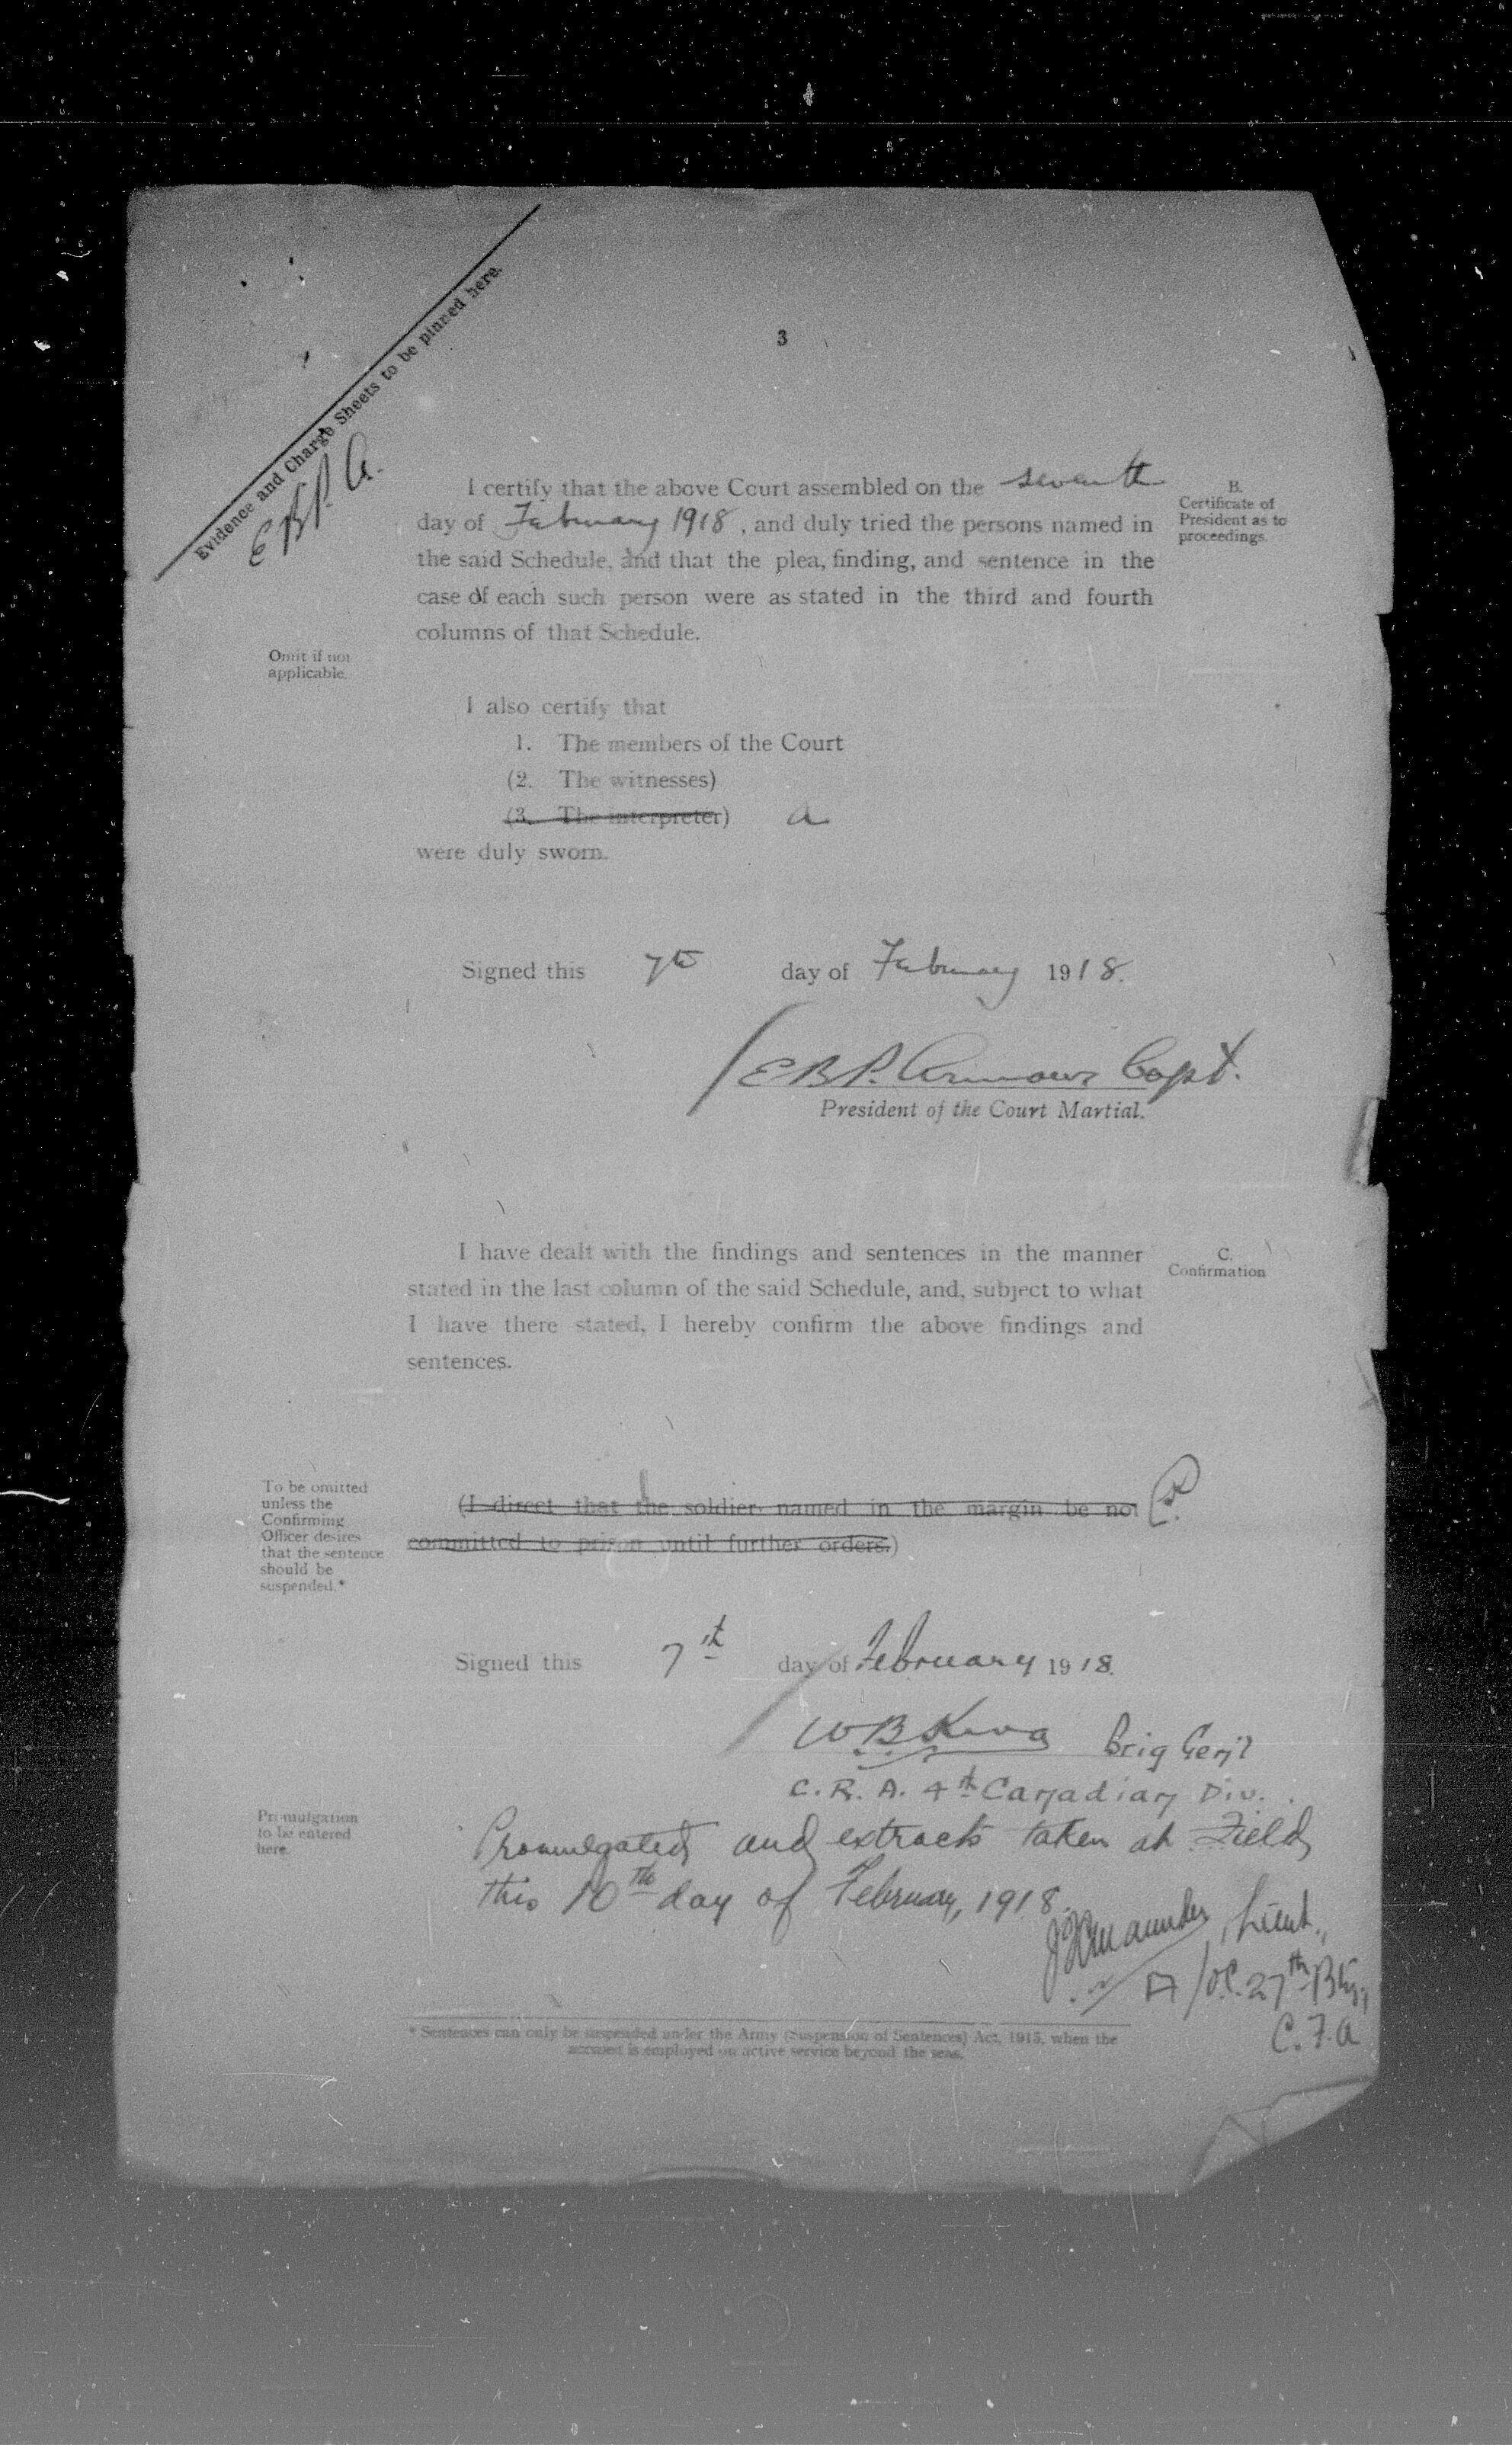 3
Evidence and Charge Sheets to be pinned here.
E.B.P.A.
I certify that the above Court assembled on the seventh
day of February 1918, and duly tried the persons named in
the said Schedule, and that the plea, finding, and sentence in the
case of each such person were as stated in the third and fourth
columns of that Schedule.
B.
Certificate of
President as to
proceedings.
Omit if not
applicable.
I also certify that
1. The members of the Court
(2. The witnesses)
(3. The interpreter) a
were duly sworn.
Signed this 7th day of February 1918.
E.B.P. Armour Capt.
President of the Court Martial.
I have dealt with the findings and sentences in the manner
stated in the last column of the said Schedule, and, subject to what
I have there stated, I hereby confirm the above findings and
sentences.
C.
Confirmation
To be omitted
unless the
Confirming
Officer desires
that the sentence
should be
suspended.*
(I direct that the soldier named in the margin be not
committed to prison until further orders.)
Signed this 7th day of February 1918.
W B King Brig Genl
C. R. A. 4th Canadian Div.
Promulgation
to be entered
here.
Promulgated and extracts taken at Field
this 10th day of February, 1918.
Lieut.,
A/O.C. 27th Bty.,
C.F.A
* Sentences can only be suspended under the Army (Suspension of Sentences) Act, 1915, when the
accused is employed on active service beyond the seas.